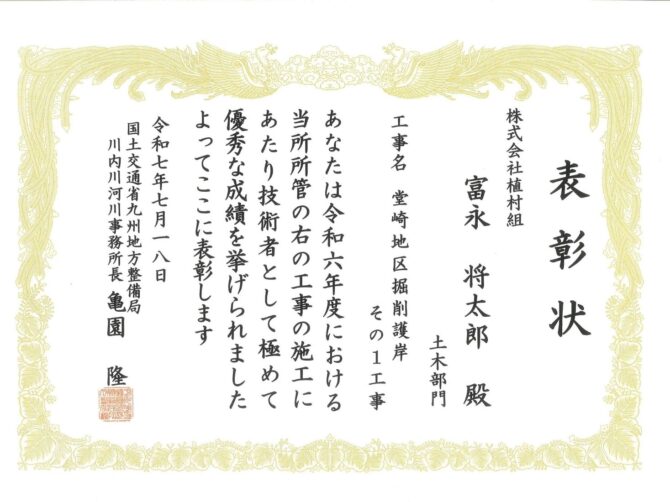 表彰状
株式会社植村組
富永 将太郎 殿
土木部門
工事名 堂崎地区掘削護岸
その1工事
あなたは令和六年度における
当所所管の右の工事の施工に
あたり技術者として極めて
優秀な成績を挙げられました
よってここに表彰します
令和七年七月一八日
国土交通省九州地方整備局
川内川河川事務所長 亀園 隆